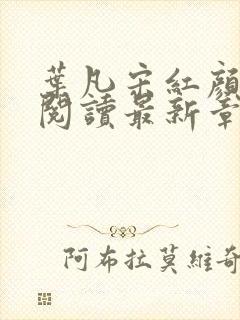 葉凡宋紅顏
閱讀最新章
阿布拉莫維奇